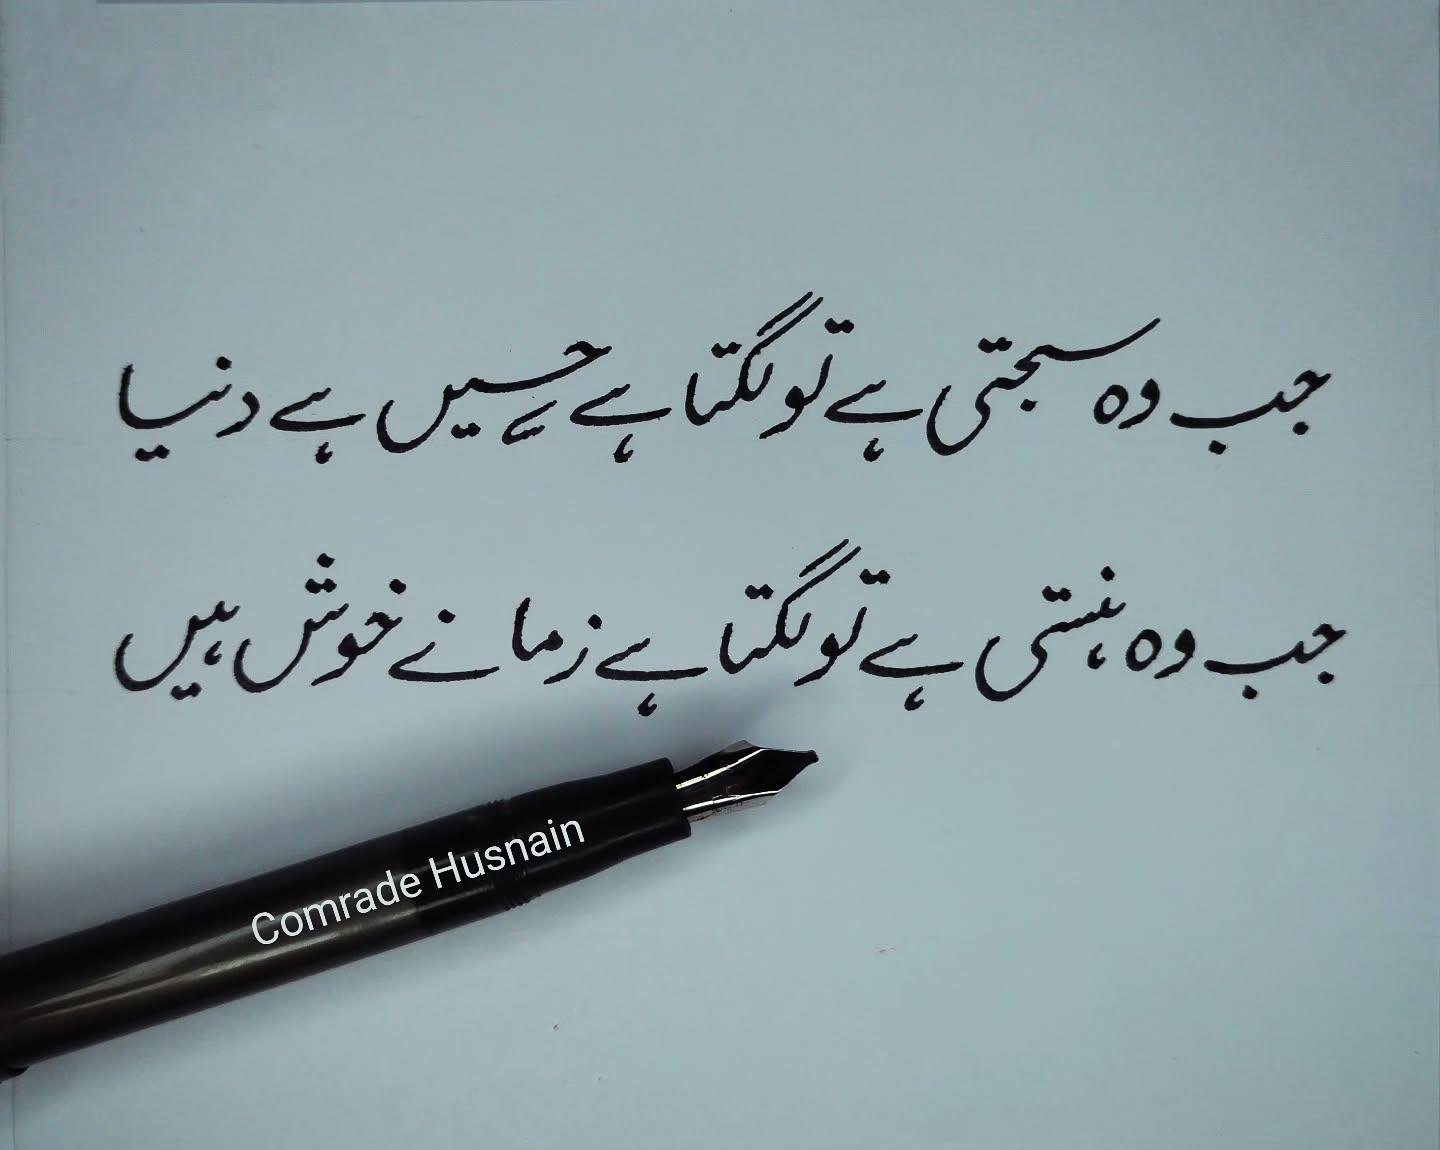 جب وہ سجتی ہے تو لگتا ہے حسیں ہے دنیا
جب وہ ہنستی ہے تو لگتا ہے زمانے خوش ہیں
Comrade Husnain